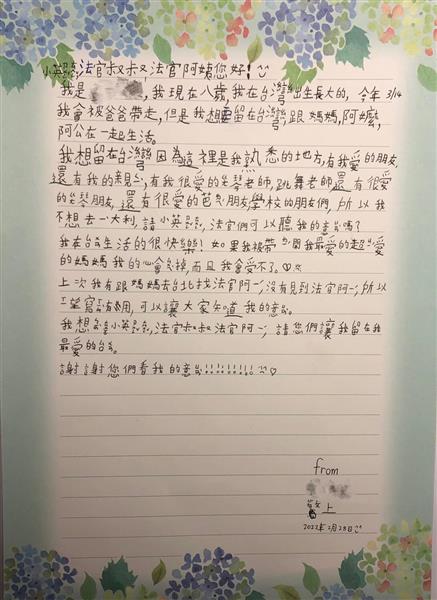 小英 法官叔叔,法官阿姨您好!
我是 ,我現在八歲我在台灣出生長大的,今年3/14
我會被爸爸帶走,但是我想留在台灣跟媽媽,阿嬤,
阿公在一起生活。
我想留在台灣因為這裡是我熟悉的地方,有我愛的朋友
還有我的親 ,有我很愛的 琴老師,跳舞老師還有很愛
的 琴朋友,還有很愛的芭 朋友學校的朋友們,所以我
不想去一大利,請小英 ,法官們可以聽我的意 嗎?
我在台 生活的很快樂!如果我被帶 開我最愛的超 愛
的媽媽我的心會 掉而且我會受不了。♡
上次我有跟媽媽去台北找法官阿ㄧˊ,沒有見到法官阿ㄧˊ,所以
望寫 有用,可以讓大家知道我的意 。
我想 小英 ,法官叔叔法官阿ㄧˊ,請您們讓我留在我
最愛的台 。
謝謝您們看我的意 !!!!!!!!! ♡
from
敬上
2022年2月28日